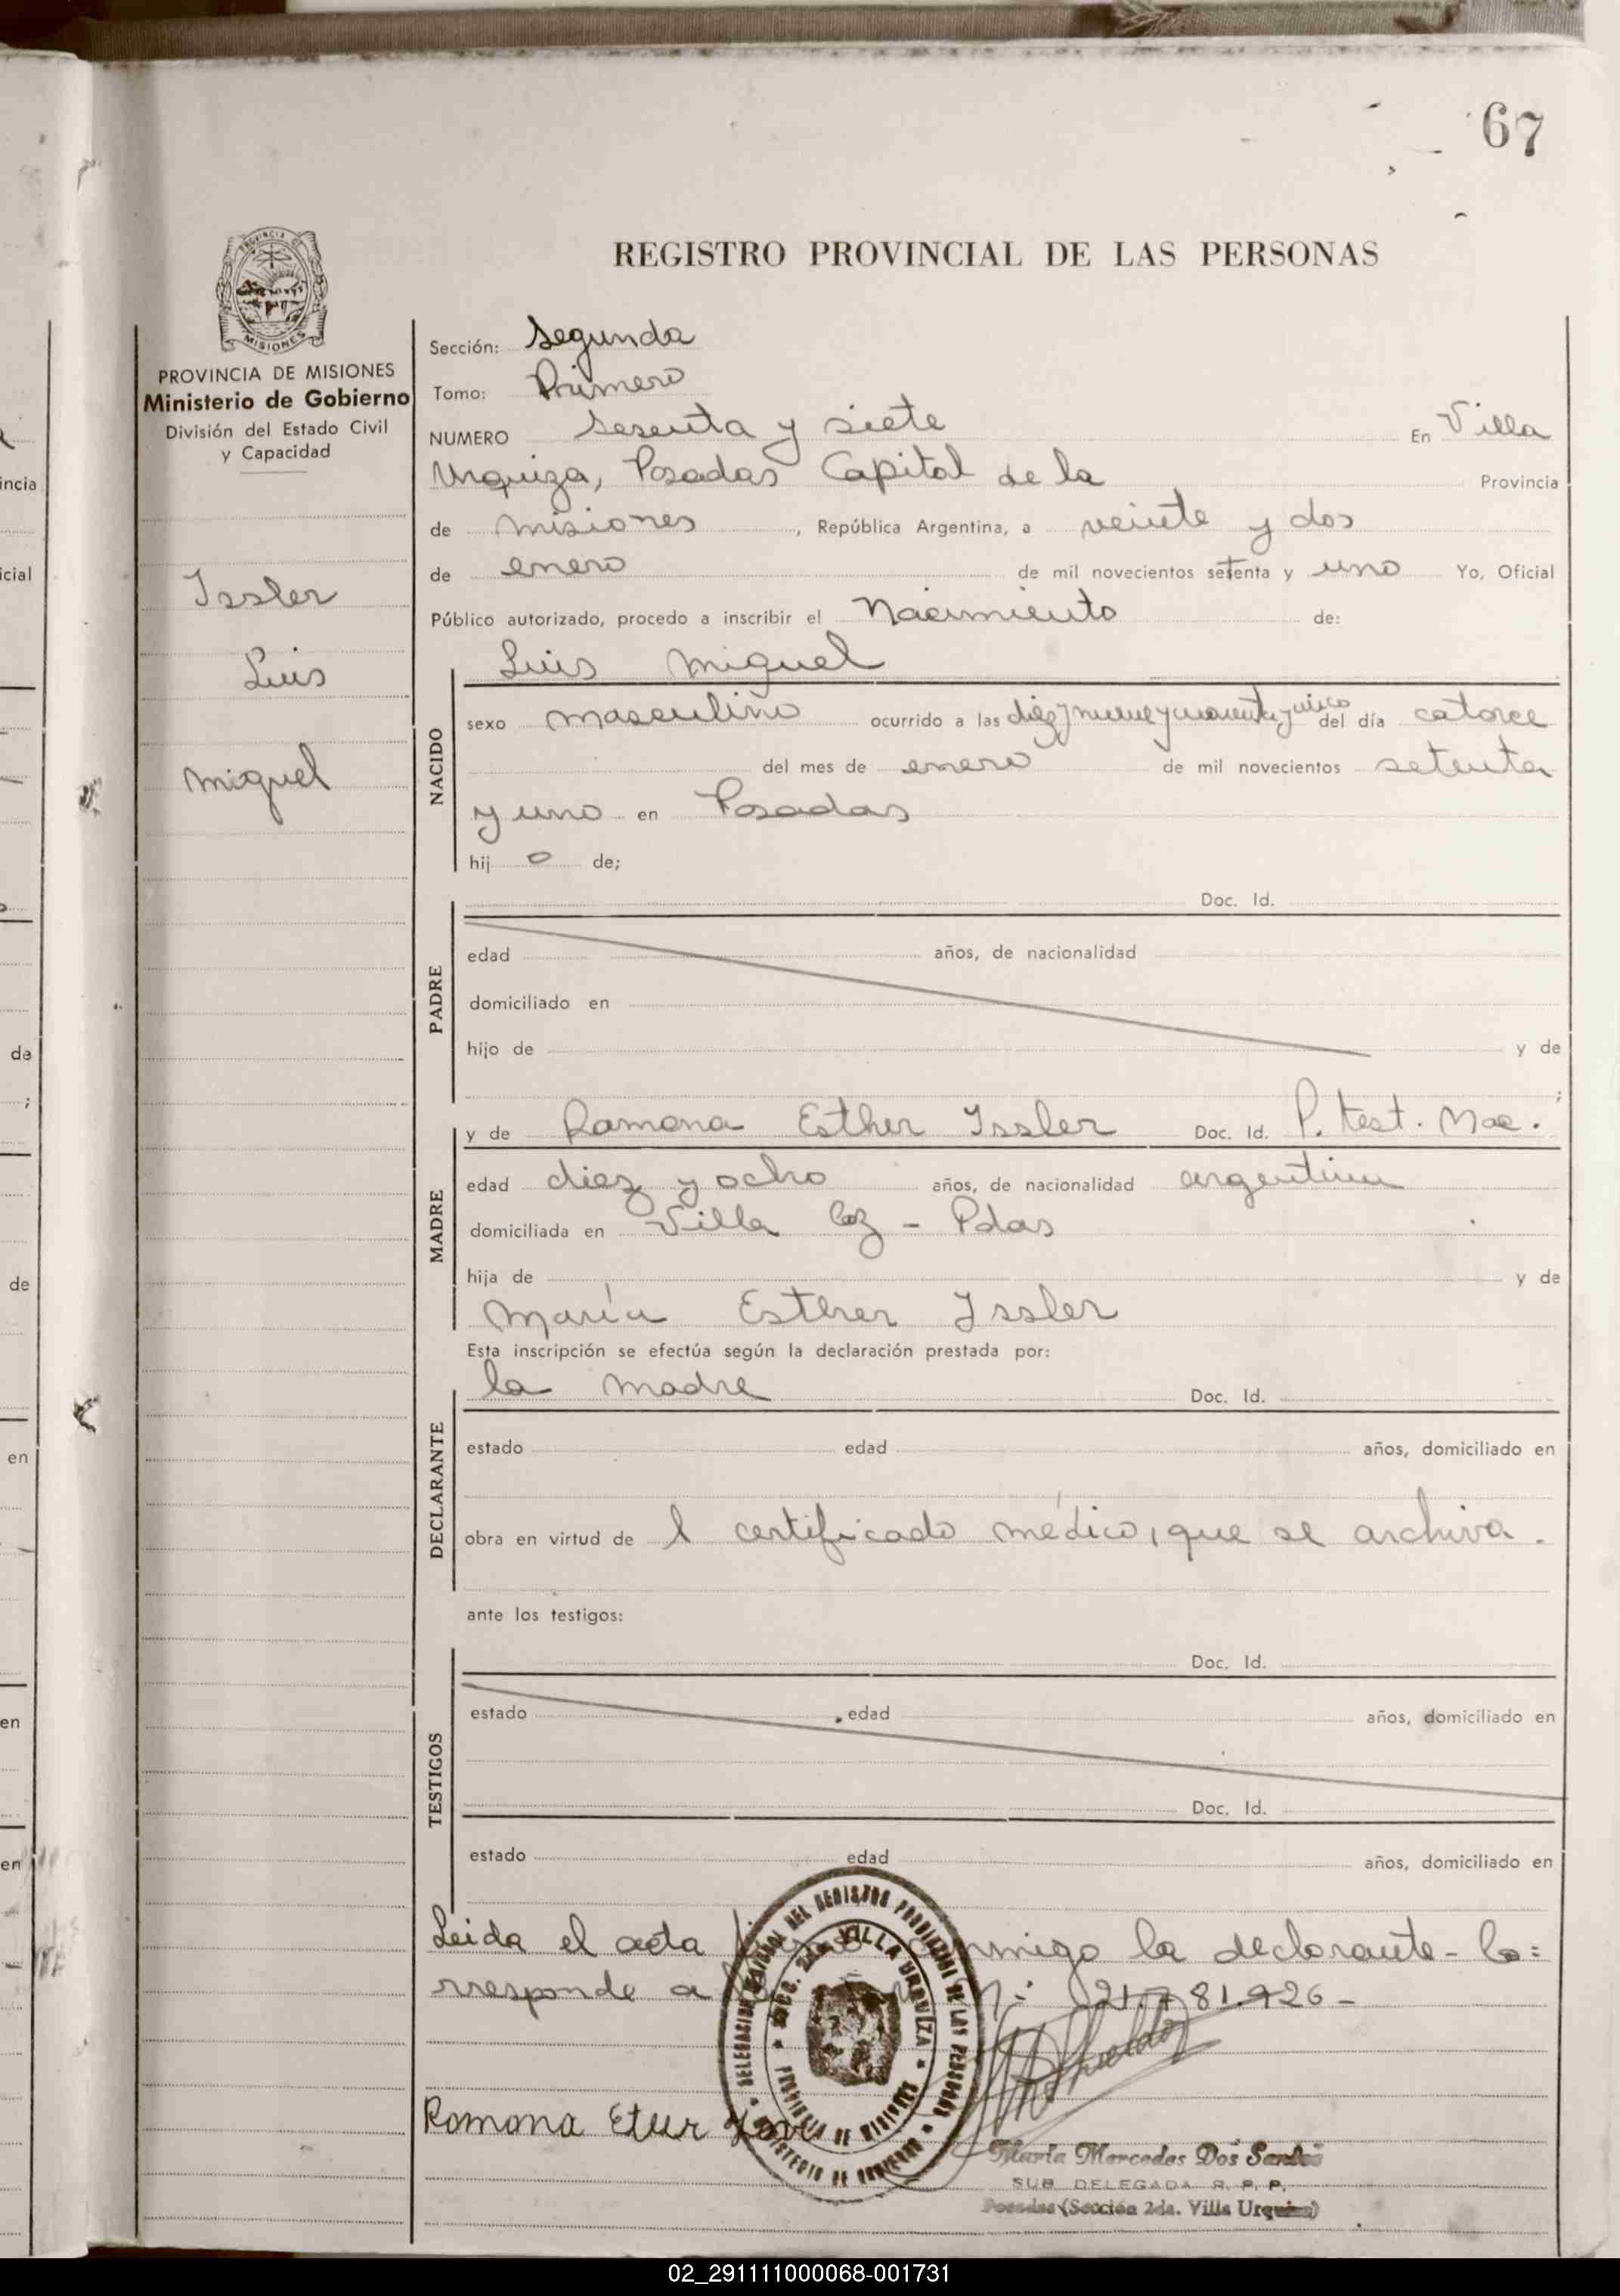 67
REGISTRO PROVINCIAL DE LAS PERSONAS
PROVINCIA DE MISIONES
Ministerio de Gobierno
División del Estado Civil
y Capacidad
Issler
Luis
Miguel
Sección: Segunda
Tomo: Primero
NUMERO Sesenta y siete En Villa
Urquiza, Posadas Capital de la Provincia
de Misiones, República Argentina, a veinte y dos
de enero de mil novecientos setenta y uno Yo, Oficial
Público autorizado, procedo a inscribir el Nacimiento de:
Luis Miguel
NACIDO
sexo masculino ocurrido a las diez y nueve y cuarenta y cinco del día catorce
del mes de enero de mil novecientos setenta
y uno en Posadas
hij o de;
Doc. Id.
PADRE
edad años, de nacionalidad
domiciliado en
hijo de y de
;
MADRE
y de Ramona Esther Issler Doc. Id. P. test. Nac.
edad diez y ocho años, de nacionalidad argentina
domiciliada en Villa - Pdas
hija de y de
María Esther Issler
Esta inscripción se efectúa según la declaración prestada por:
la madre Doc. Id.
DECLARANTE
estado edad años, domiciliado en
obra en virtud de l certificado médico, que se archiva.
ante los testigos:
Doc. Id.
TESTIGOS
estado edad años, domiciliado en
Doc. Id.
estado edad años, domiciliado en
Leida el acta conmigo la declarante - Co=
rresponde a
Ramona
DELEGACION DEL REGISTRO PROVINCIAL DE LAS PERSONAS
SECC. 2da VILLA URQUIZA
PROVINCIA DE MISIONES
MINISTERIO DE GOBIERNO
María Mercedes Dos Santos
SUB DELEGADA R. P. P.
Posadas (Sección 2da. Villa Urquiza)
02_291111000068-001731